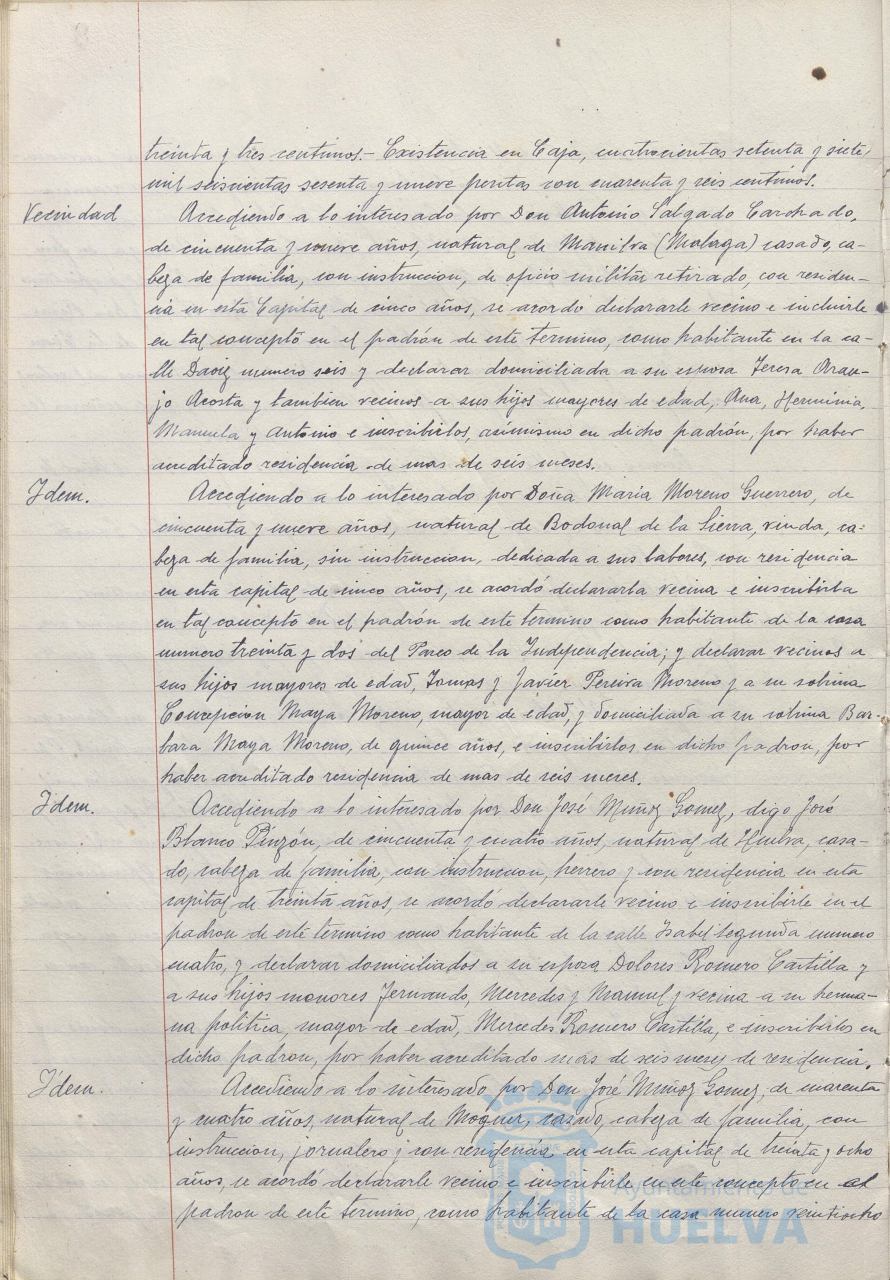 treinta y tres centimos.- Existencia en Caja, cuatrocientas setenta y siete
mil seiscientas sesenta y nueve pesetas con cuarenta y seis centimos.
Vecindad
Accediendo a lo interesado por Don Antonio Salgado Carchado,
de cincuenta y nueve años, natural de Manilva (Malaga) casado, ca-
beza de familia, con instruccion, de oficio militar retirado, con residen-
cia en esta Capital de cinco años, se acordo declararle vecino e incluirle
en tal concepto en el padrón de este termino, como habitante en la ca-
lle Daoiz numero seis y declarar domiciliada a su esposa Teresa Arau-
jo Acosta y tambien vecinos a sus hijos mayores de edad, Ana, Herminia,
Manuela y Antonio e inscribirlos, asimismo en dicho padrón, por haber
acreditado residencia de mas de seis meses.
Idem.
Accediendo a lo interesado por Doña Maria Moreno Guerrero, de
cincuenta y nueve años, natural de Bodonal de la Sierra, viuda, ca-
beza de familia, sin instruccion, dedicada a sus labores, con residencia
en esta capital de cinco años, se acordó declararla vecina e inscribirla
en tal concepto en el padrón de este termino como habitante de la casa
numero treinta y dos del Paseo de la Independencia; y declarar vecinos a
sus hijos mayores de edad, Tomas y Javier Pereira Moreno y a su sobrina
Concepcion Maya Moreno, mayor de edad, y domiciliada a su sobrina Bar-
bara Maya Moreno, de quince años, e inscribirlos en dicho padron, por
haber acreditado residencia de mas de seis meses.
Idem.
Accediendo a lo interesado por Don José Muñoz Gomez, digo José
Blanco Pinzón, de cincuenta y cuatro años, natural de Huelva, casa-
do, cabeza de familia, con instruccion, herrero y con residencia en esta
capital de treinta años, se acordó declararle vecino e inscribirle en el
padron de este termino como habitante de la calle Isabel Segunda numero
cuatro, y declarar domiciliados a su esposa Dolores Romero Castilla y
a sus hijos menores Fernando, Mercedes y Manuel y vecina a su herma-
na politica, mayor de edad, Mercedes Romero Castilla, e inscribirlos en
dicho padron, por haber acreditado más de seis meses de residencia.
Idem.
Accediendo a lo interesado por Don José Muñoz Gomez, de cuarenta
y cuatro años, natural de Moguer, casado, cabeza de familia, con
instruccion, jornalero y con residencia en esta capital de treinta y ocho
años, se acordó declararle vecino e inscribirle en este concepto en el
padron de este termino, como habitante de la casa numero veintiocho
Ayuntamiento de
HUELVA